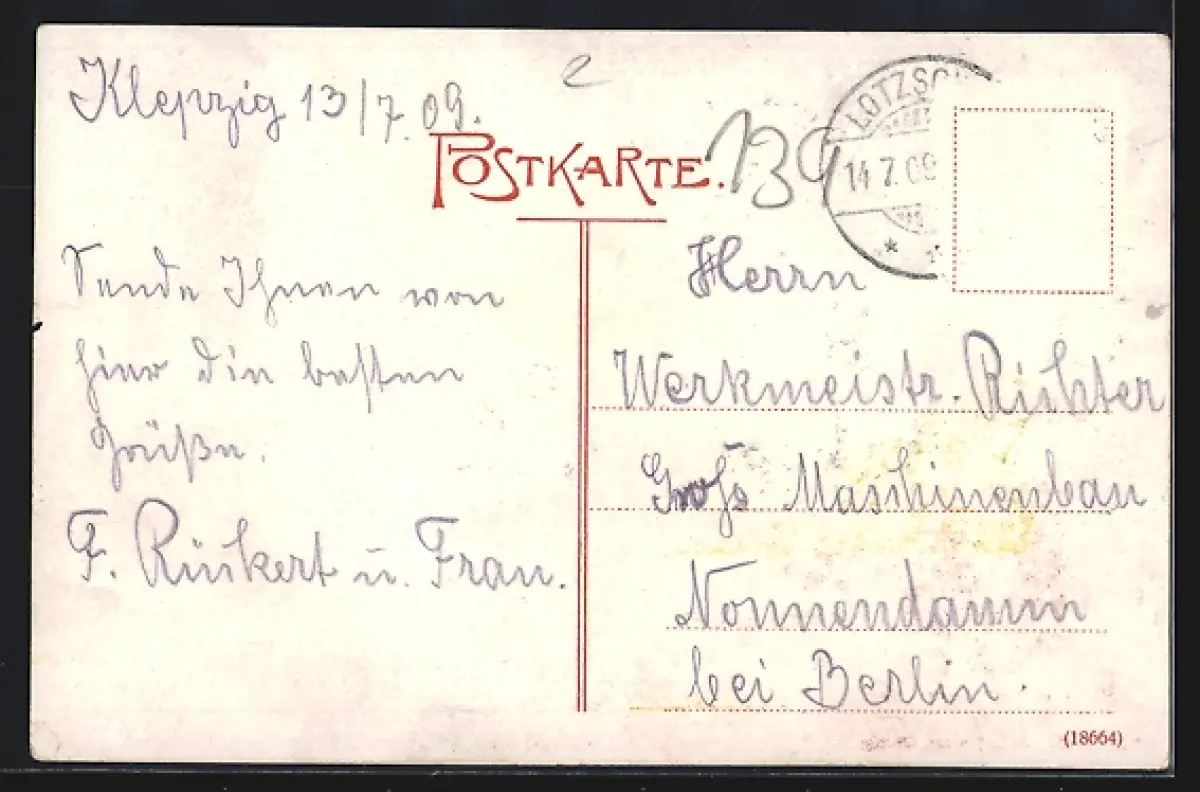 Klepzig 13/7.09.
POSTKARTE.
139
LOTZSCH
14 7.09
Sende Ihnen von
hier die besten
Grüße.
F. Rückert u. Frau.
Herrn
Werkmeistr. Richter
Groß Maschinenbau
Nonnendamm
bei Berlin.
(18664)